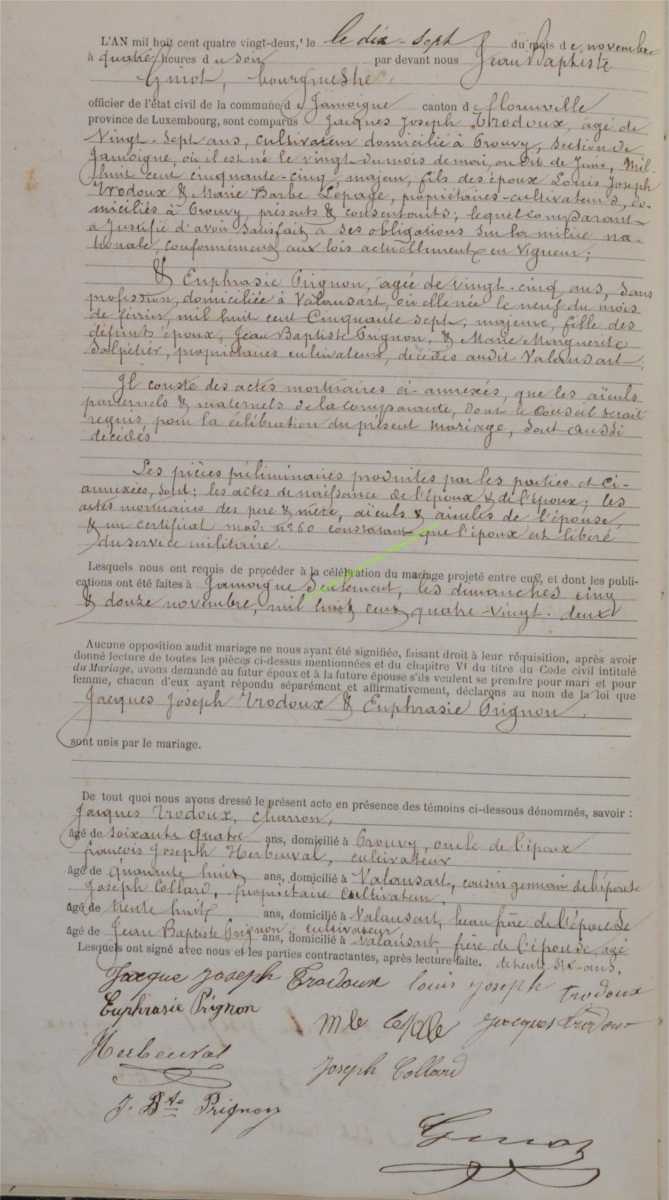 L'AN mil huit cent quatre vingt-deux, le le dix-sept du mois de novembre
à quatre heures du soir par devant nous Jean Baptiste
bourgmestre
officier de l'état civil de la commune de Jamoigne canton de florenville
province de Luxembourg, sont comparus Jacques Joseph Trodoux, âgé de
Vingt-Sept ans, cultivateur domicilié à Prouvy, section de
Jamoigne, où il est né le vingt du mois de mai, ou dit de Juin, Mil
huit cent cinquante-cinq, majeur, fils des époux Louis Joseph
Trodoux & Marie Barbe Lépage, propriétaires-cultivateurs, do-
miciliés à Prouvy, présents & consentants; lequel comparant
a justifié d'avoir Satisfait à ses obligations sur la milice na-
tionale, conformément aux lois actuellement en Vigueur;
& Euphrasie Prignon, âgée de vingt-cinq ans, sans
profession, domiciliée à Valansart, où elle née le neuf du mois
de février, mil huit cent Cinquante sept, majeure, fille des
défunts époux, Jean Baptiste Prignon, & Marie Marguerite
Salpétier, propriétaires cultivateurs, décédés audit Valansart.
Il conste des actes mortuaires ci-annexés, que les aïeuls
paternels & maternels de la comparante, dont le Conseil serait
requis, pour la célébration du présent mariage, sont aussi
décédés
Les pièces préliminaires produites par les parties et Ci-
annexées, sont: les actes de naissance de l'époux & de l'époux; les
actes mortuaires des père & mère, aïeuls & aïeules de l'épouse,
& un certificat mod. n° 60 constatant que l'époux est libéré
du service militaire.
Lesquels nous ont requis de procéder à la célébration du mariage projeté entre eux, et dont les publi-
cations ont été faites à Jamoigne Seulement, les dimanches cinq
& douze novembre, mil huit cent quatre-vingt-deux
Aucune opposition audit mariage ne nous ayant été signifiée, faisant droit à leur réquisition, après avoir
donné lecture de toutes les pièces ci-dessus mentionnées et du chapitre VI du titre du Code civil intitulé
du Mariage, avons demandé au futur époux et à la future épouse s'ils veulent se prendre pour mari et pour
femme, chacun d'eux ayant répondu séparément et affirmativement, déclarons au nom de la loi que
Jacques Joseph Trodoux & Euphrasie Prignon,
sont unis par le mariage.
De tout quoi nous avons dressé le présent acte en présence des témoins ci-dessous dénommés, savoir :
Jacques Trodoux, charron,
âgé de soixante quatre ans, domicilié à Prouvy, oncle de l'époux
françois Joseph Herbeuval, cultivateur
âgé de Quarante huit ans, domicilié à Valansart, cousin germain de l'épouse
Joseph Collard, propriétaire cultivateur,
âgé de trente huit ans, domicilié à Valansart, beau frère de l'épouse
Jean Baptiste Prignon, cultivateur
âgé de ans, domicilié à Valansart, frère de l'épouse, âgé
Lesquels ont signé avec nous et les parties contractantes, après lecture faite. de trente six-ans.
Jacque Joseph Trodoux louis joseph trodoux
Euphrasie Prignon
Jacques Trodoux
Herbeuval
Joseph Collard
J. Bte Prignon